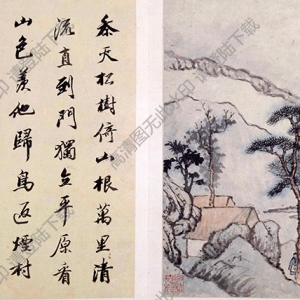 叅天松樹倚山根萬里清
流直到門獨立平原看
山色羨他歸鳥返煙村
高清图无此水印 请登陆下载